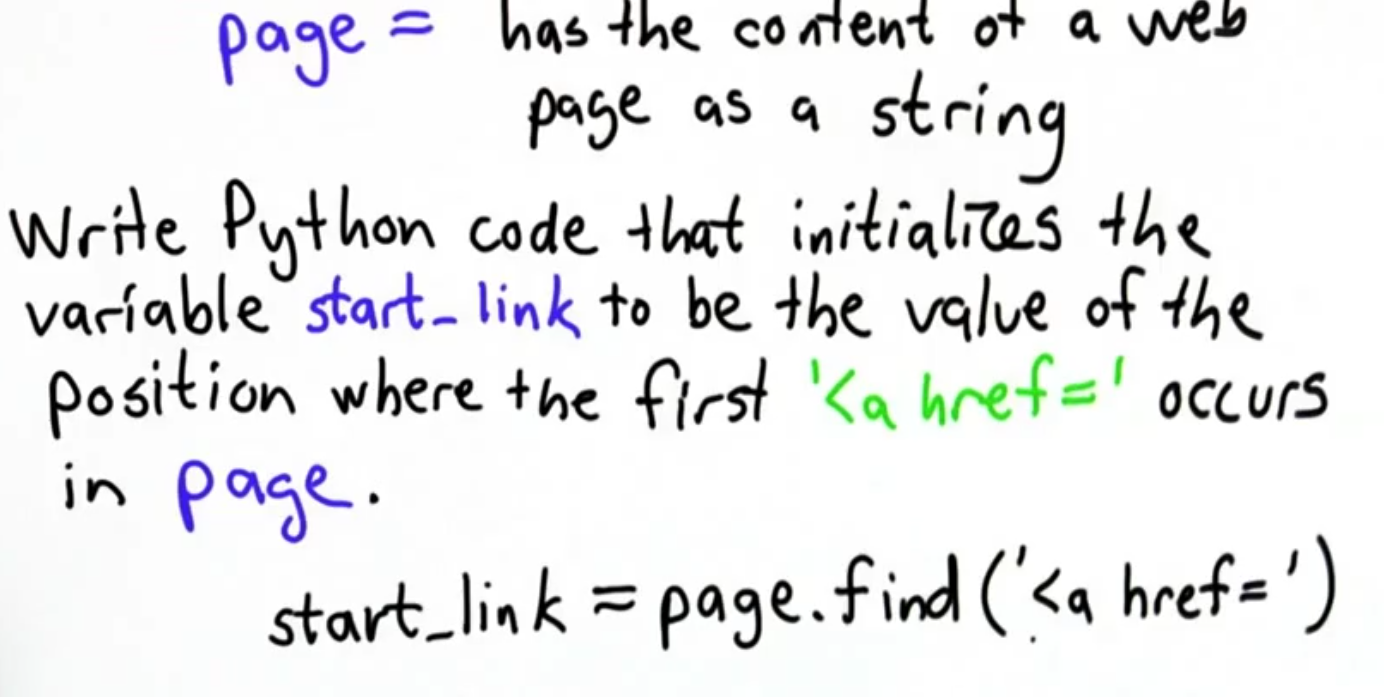 page = has the content of a web
page as a string
Write Python code that initializes the
variable start_link to be the value of the
position where the first '<a href=' occurs
in page.
start_link = page.find('<a href=')